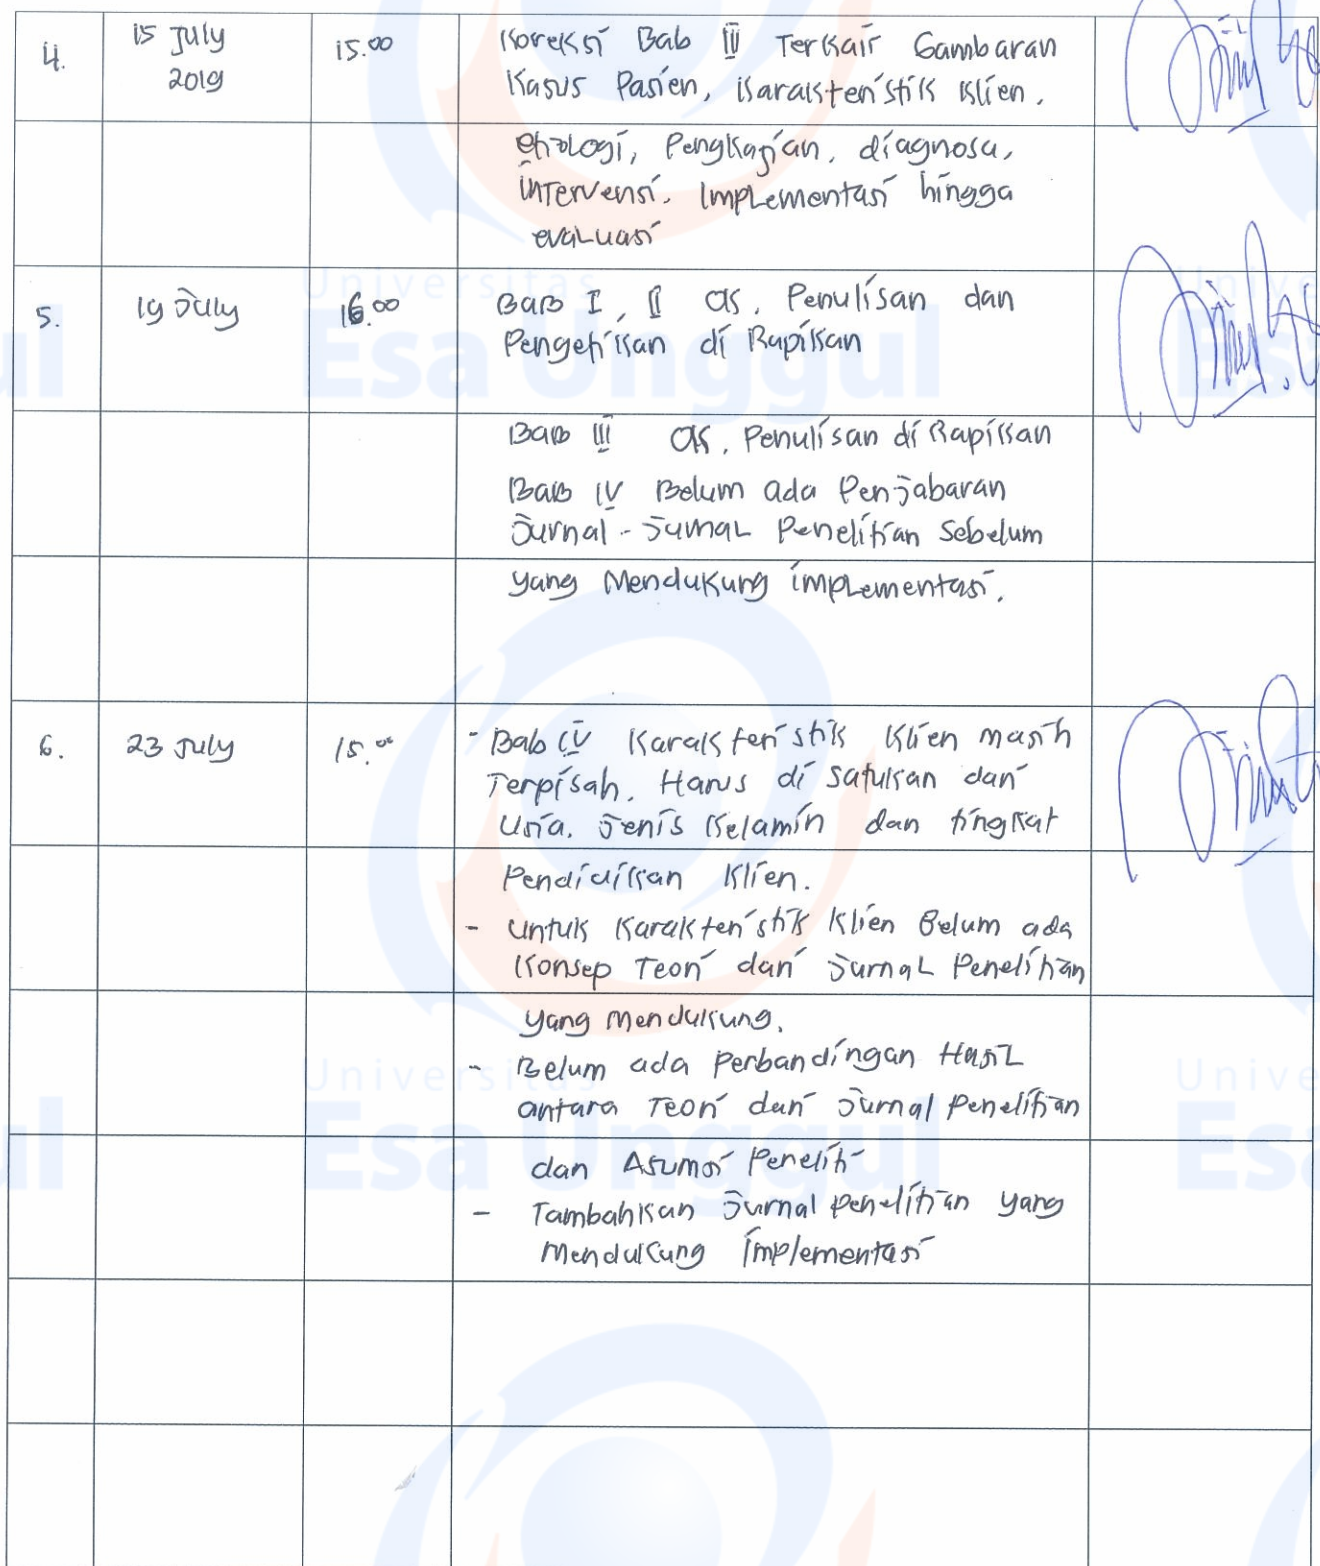 4.
15 July
2019
15.00
Koreksi Bab III Terkait Gambaran
Kasus Pasien, Karakteristik Klien.
etiologi, Pengkajian, diagnosa,
intervensi. Implementasi hingga
evaluasi
5.
19 July
16.00
Bab I, II ok, Penulisan dan
Pengetikan di Rapikan
Bab III ok, Penulisan di Rapikan
Bab IV Belum ada Penjabaran
Jurnal - Jurnal Penelitian Sebelum
yang Mendukung implementasi.
6.
23 July
15.00
- Bab IV Karakteristik Klien masih
Terpisah. Harus di satukan dari
Usia. Jenis Kelamin dan tingkat
Pendidikan Klien.
- Untuk Karakteristik Klien Belum ada
Konsep Teori dari Jurnal Penelitian
yang mendukung.
- Belum ada Perbandingan Hasil
antara Teori dari Jurnal Penelitian
dan Asumsi Peneliti
- Tambahkan Jurnal penelitian yang
Mendukung Implementasi
Universitas
Esa Unggul
Universitas
Esa Unggul